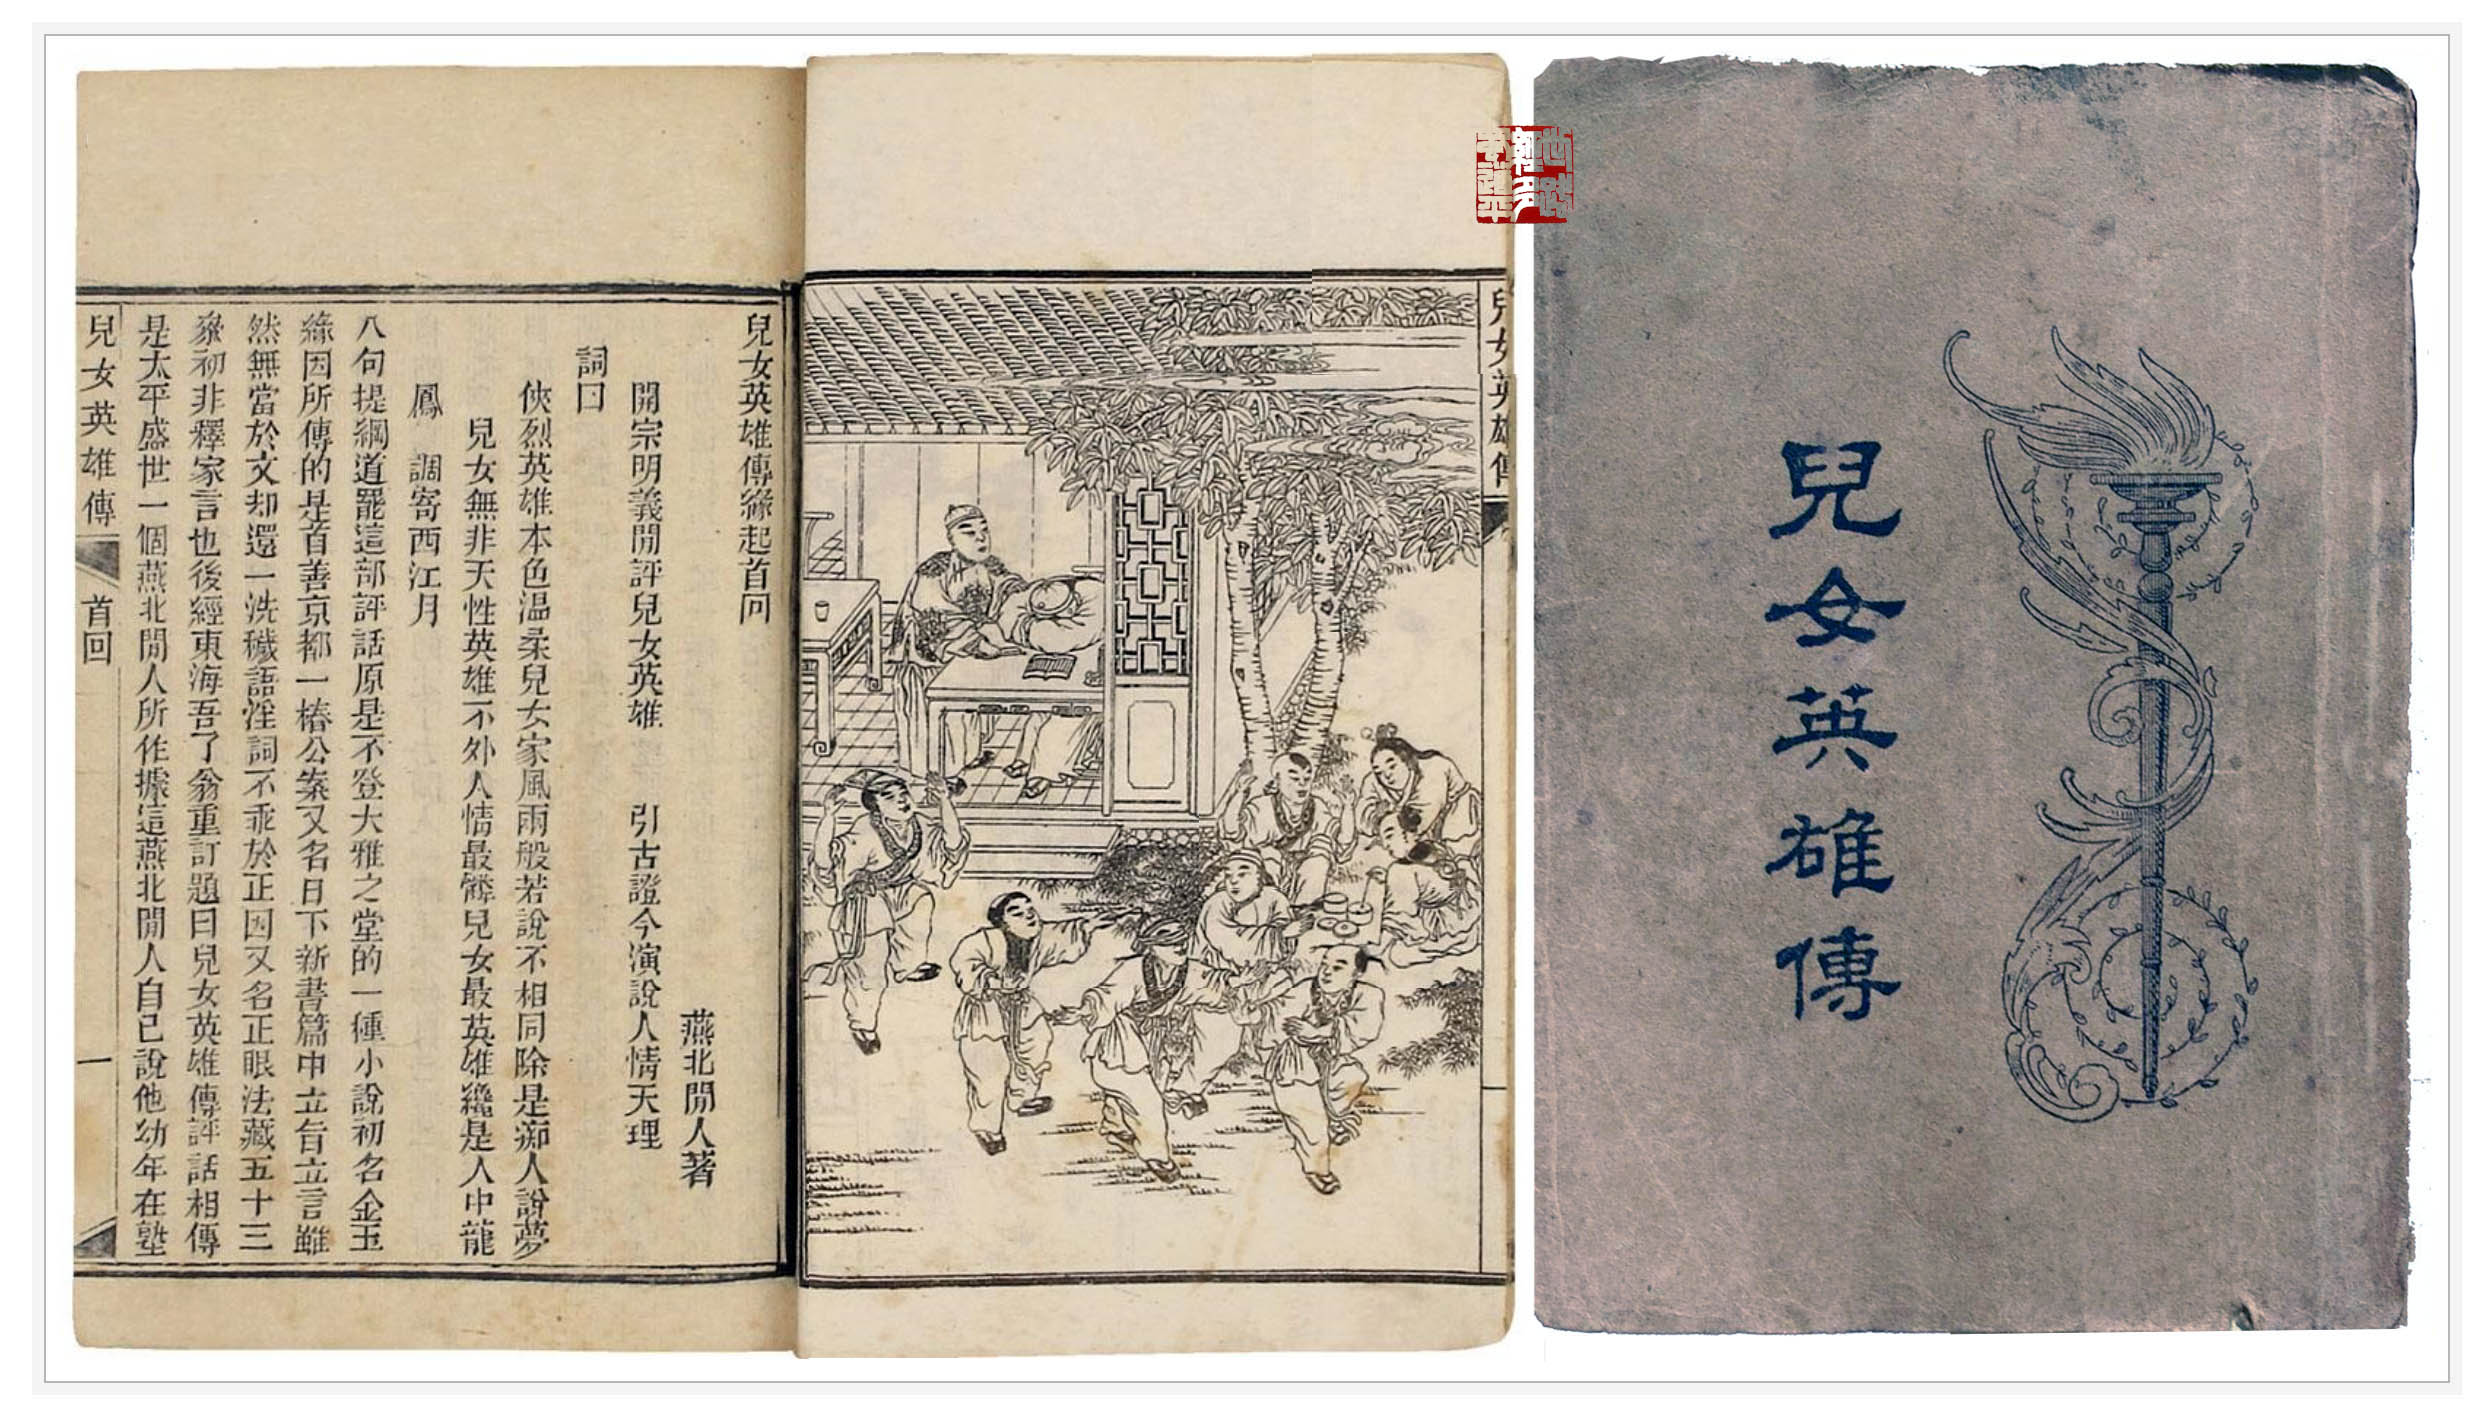 兒女英雄傳
兒女英雄傳
兒女英雄傳緣起首回
燕北閒人著
開宗明義閒評兒女英雄 引古證今演說人情天理
詞曰
俠烈英雄本色溫柔兒女家風兩般若說不相同除是痴人說夢
兒女無非天性英雄不外人情最憐兒女最英雄纔是人中龍
鳳 調寄西江月
八句提綱道罷這部評話原是不登大雅之堂的一種小說初名金玉
緣因所傳的是首善京都一樁公案又名日下新書篇中立旨立言雖
然無當於文却還一洗穢語淫詞不乖於正因又名正眼法藏五十三
叅初非釋家言也後經東海吾了翁重訂題曰兒女英雄傳評話相傳
是太平盛世一個燕北閒人所作據這燕北閒人自己說他幼年在塾
兒女英雄傳 首回 一